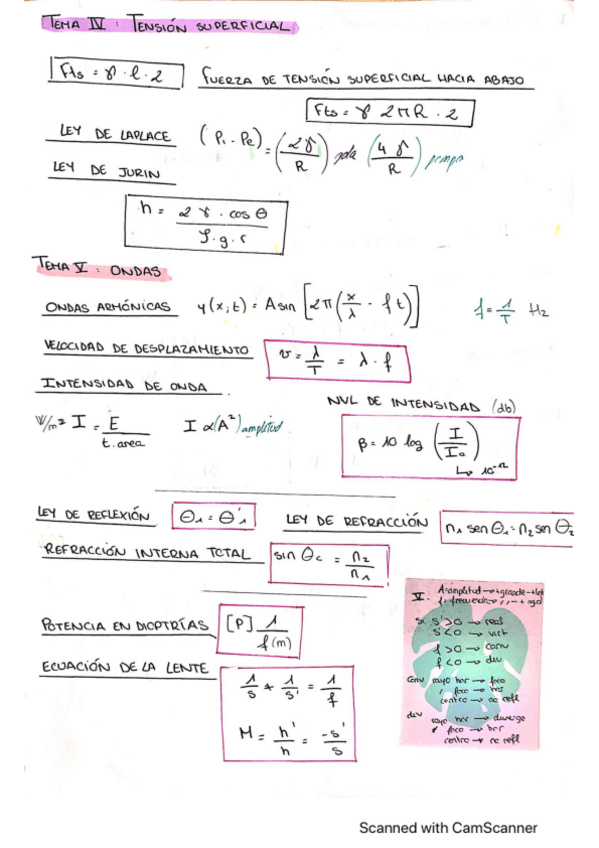 TEMA IV : TENSIÓN SUPERFICIAL
Fts = γ · l · 2 FUERZA DE TENSIÓN SUPERFICIAL HACIA ABAJO
Fts = γ 2πR · 2
LEY DE LAPLACE (Pi - Pe) = (2γ/R) gota (4γ/R) pompa
LEY DE JURIN
h = 2γ · cos θ / ρ · g · r
TEMA V : ONDAS
ONDAS ARMÓNICAS y(x;t) = A sin [2π(x/λ - ft)] f = 1/T Hz
VELOCIDAD DE DESPLAZAMIENTO v = λ/T = λ · f
INTENSIDAD DE ONDA
NVL DE INTENSIDAD (db)
W/m² I = E / t. area I ∝ (A²) amplitud
β = 10 log (I/I₀)
↳ 10⁻¹²
LEY DE REFLEXIÓN θ₁ = θ'₁ LEY DE REFRACCIÓN n₁ sen θ₁ = n₂ sen θ₂
REFRACCIÓN INTERNA TOTAL sin θc = n₂/n₁
POTENCIA EN DIOPTRÍAS [P] 1/f(m)
ECUACIÓN DE LA LENTE 1/s + 1/s' = 1/f
M = h'/h = -s'/s
V. A=amplitud → +grande
f=frecuencia
si s' > 0 → real
s' < 0 → virt
f > 0 → conv
f < 0 → div
conv rayo hor → foco
foco → hor
centro → no refl
div rayo hor → diverge
foco → hor
centro → no refl
Scanned with CamScanner